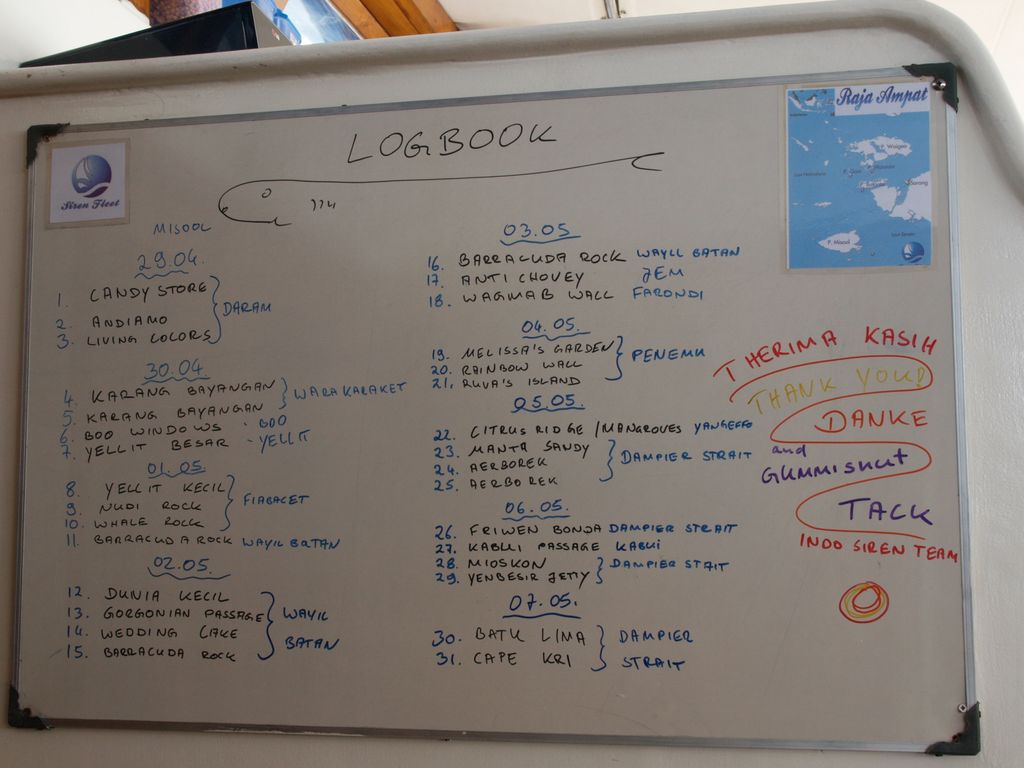 LOGBOOK
Siren Fleet
Raja Ampat
MISOOL
29.04.
1. CANDY STORE
2. ANDIAMO
3. LIVING COLORS
DARAM
30.04
4. KARANG BAYANGAN
5. KARANG BAYANGAN
WARAKARAKET
6. BOO WINDOWS - BOO
7. YELLIT BESAR - YELLIT
01.05
8. YELLIT KECIL
9. NUDI ROCK
10. WHALE ROCK
FIABACET
11. BARRACUDA ROCK WAYIL BATAN
02.05.
12. DUNIA KECIL
13. GORGONIAN PASSAGE
14. WEDDING CAKE
15. BARRACUDA ROCK
WAYIL
BATAN
03.05
16. BARRACUDA ROCK WAYIL BATAN
17. ANTI CHOVEY JEM
18. WAGMAB WALL FARONDI
04.05.
19. MELISSA'S GARDEN
20. RAINBOW WALL
21. RUVA'S ISLAND
PENEMU
05.05.
22. CITRUS RIDGE / MANGROVES YANGEFFO
23. MANTA SANDY
24. AERBOREK
25. AERBOREK
DAMPIER STRAIT
06.05.
26. FRIWEN BONDA DAMPIER STRAIT
27. KABUI PASSAGE KABUI
28. MIOSKON
29. YENBESIR JETTY
DAMPIER STRAIT
07.05.
30. BATU LIMA
31. CAPE KRI
DAMPIER
STRAIT
P. Waigeo
Sorong
P. Misool
THERIMA KASIH
THANK YOU
DANKE
and
GUMMISKUT
TACK
INDO SIREN TEAM